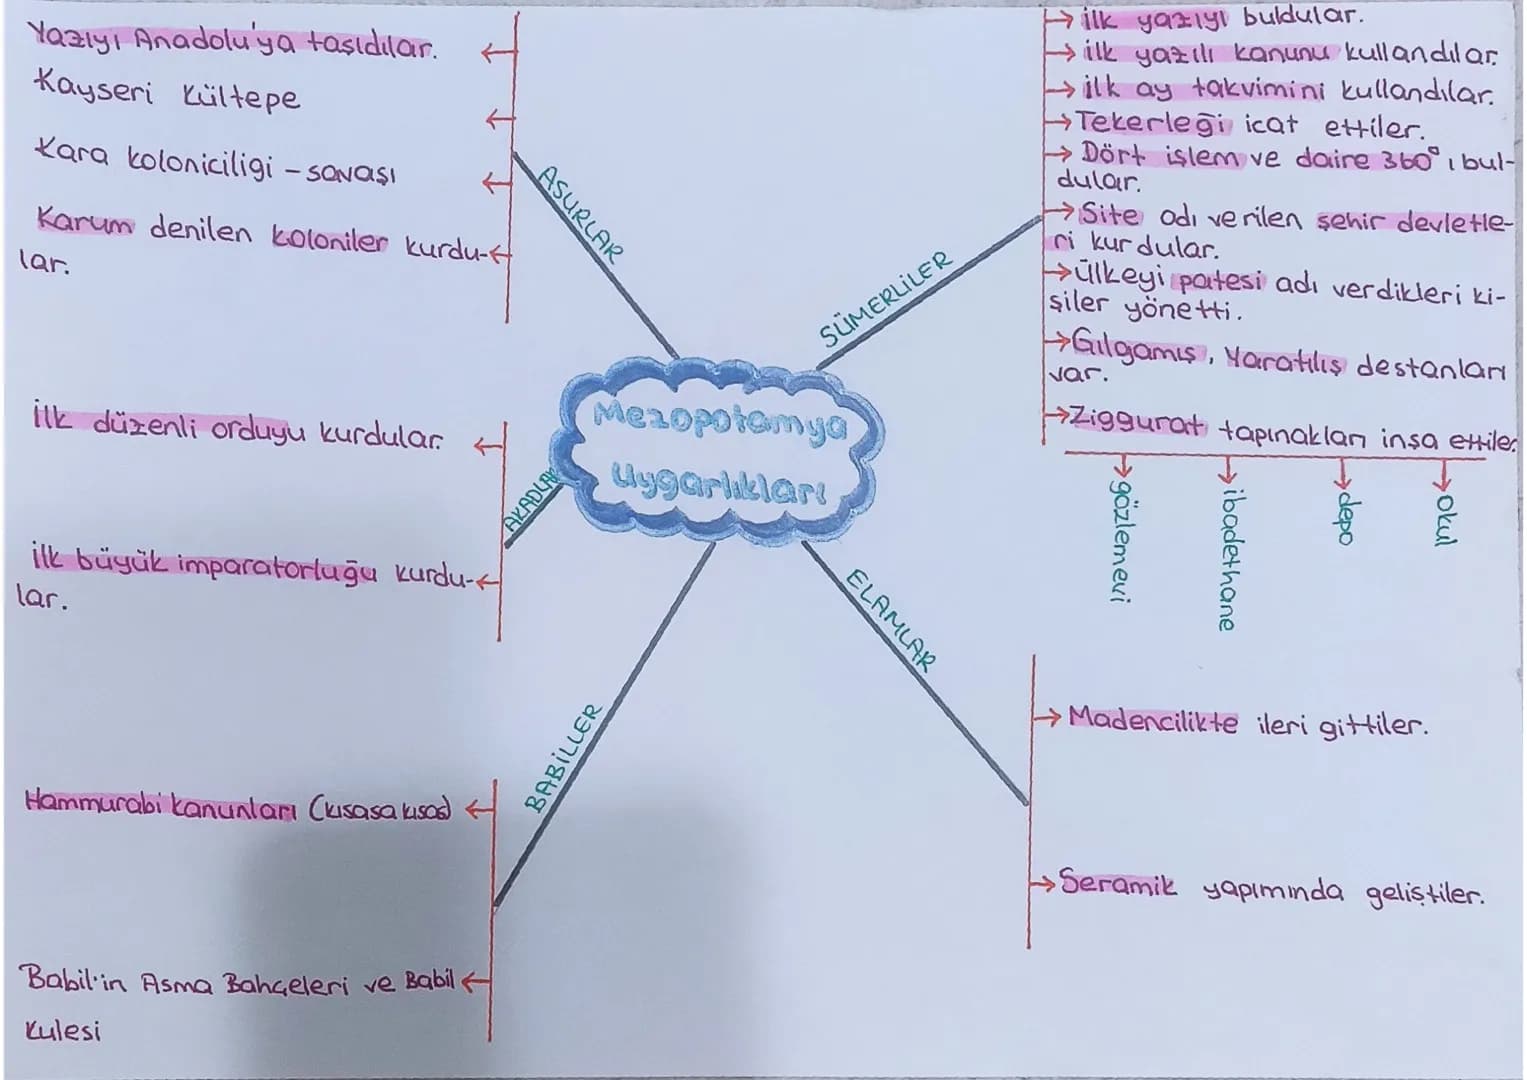 Mezopotamya
Uygarlıkları
ASURLAR
Yazıyı Anadolu'ya taşıdılar.
Kayseri Kültepe
Kara koloniciligi - savaşı
Karum denilen koloniler kurdu-
lar.
SÜMERLİLER
ilk yazıyı buldular.
ilk yazılı kanunu kullandılar.
ilk ay takvimini kullandılar.
Tekerleği icat ettiler.
Dört işlem ve daire 360° ı bul-
dular.
Site adı verilen şehir devletle-
ri kurdular.
ülkeyi patesi adı verdikleri ki-
şiler yönetti.
Gılgamış, Yaratılış destanları
var.
Ziggurat tapınakları inşa ettiler.
gözlemevi
ibadethane
depo
okul
AKADLAR
İlk düzenli orduyu kurdular.
ilk büyük imparatorluğu kurdu-
lar.
BABİLLER
Hammurabi kanunları (kısasa kısas)
Babil'in Asma Bahçeleri ve Babil
Kulesi
ELAMLAR
Madencilikte ileri gittiler.
Seramik yapımında geliştiler.